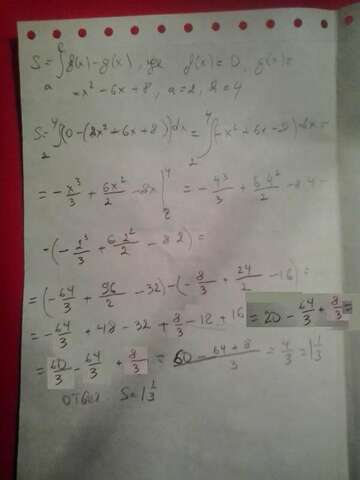 S = ∫ₐᵇ f(x) - g(x), где f(x) = 0, g(x) =
= x² - 6x + 8, a = 2, b = 4
S = ₂∫⁴ (0 - (x² - 6x + 8))dx = ₂∫⁴ (-x² + 6x - 8) dx =
= -x³/3 + 6x²/2 - 8x |⁴₂ = -4³/3 + 6·4²/2 - 8·4 -
-(-2³/3 + 6·2²/2 - 8·2) =
= (-64/3 + 96/2 - 32) - (-8/3 + 24/2 - 16) =
= -64/3 + 48 - 32 + 8/3 - 12 + 16 = 20 - 64/3 + 8/3 =
= 60/3 - 64/3 + 8/3 = (60 - 64 + 8)/3 = 4/3 = 1 1/3
ответ S = 1 1/3